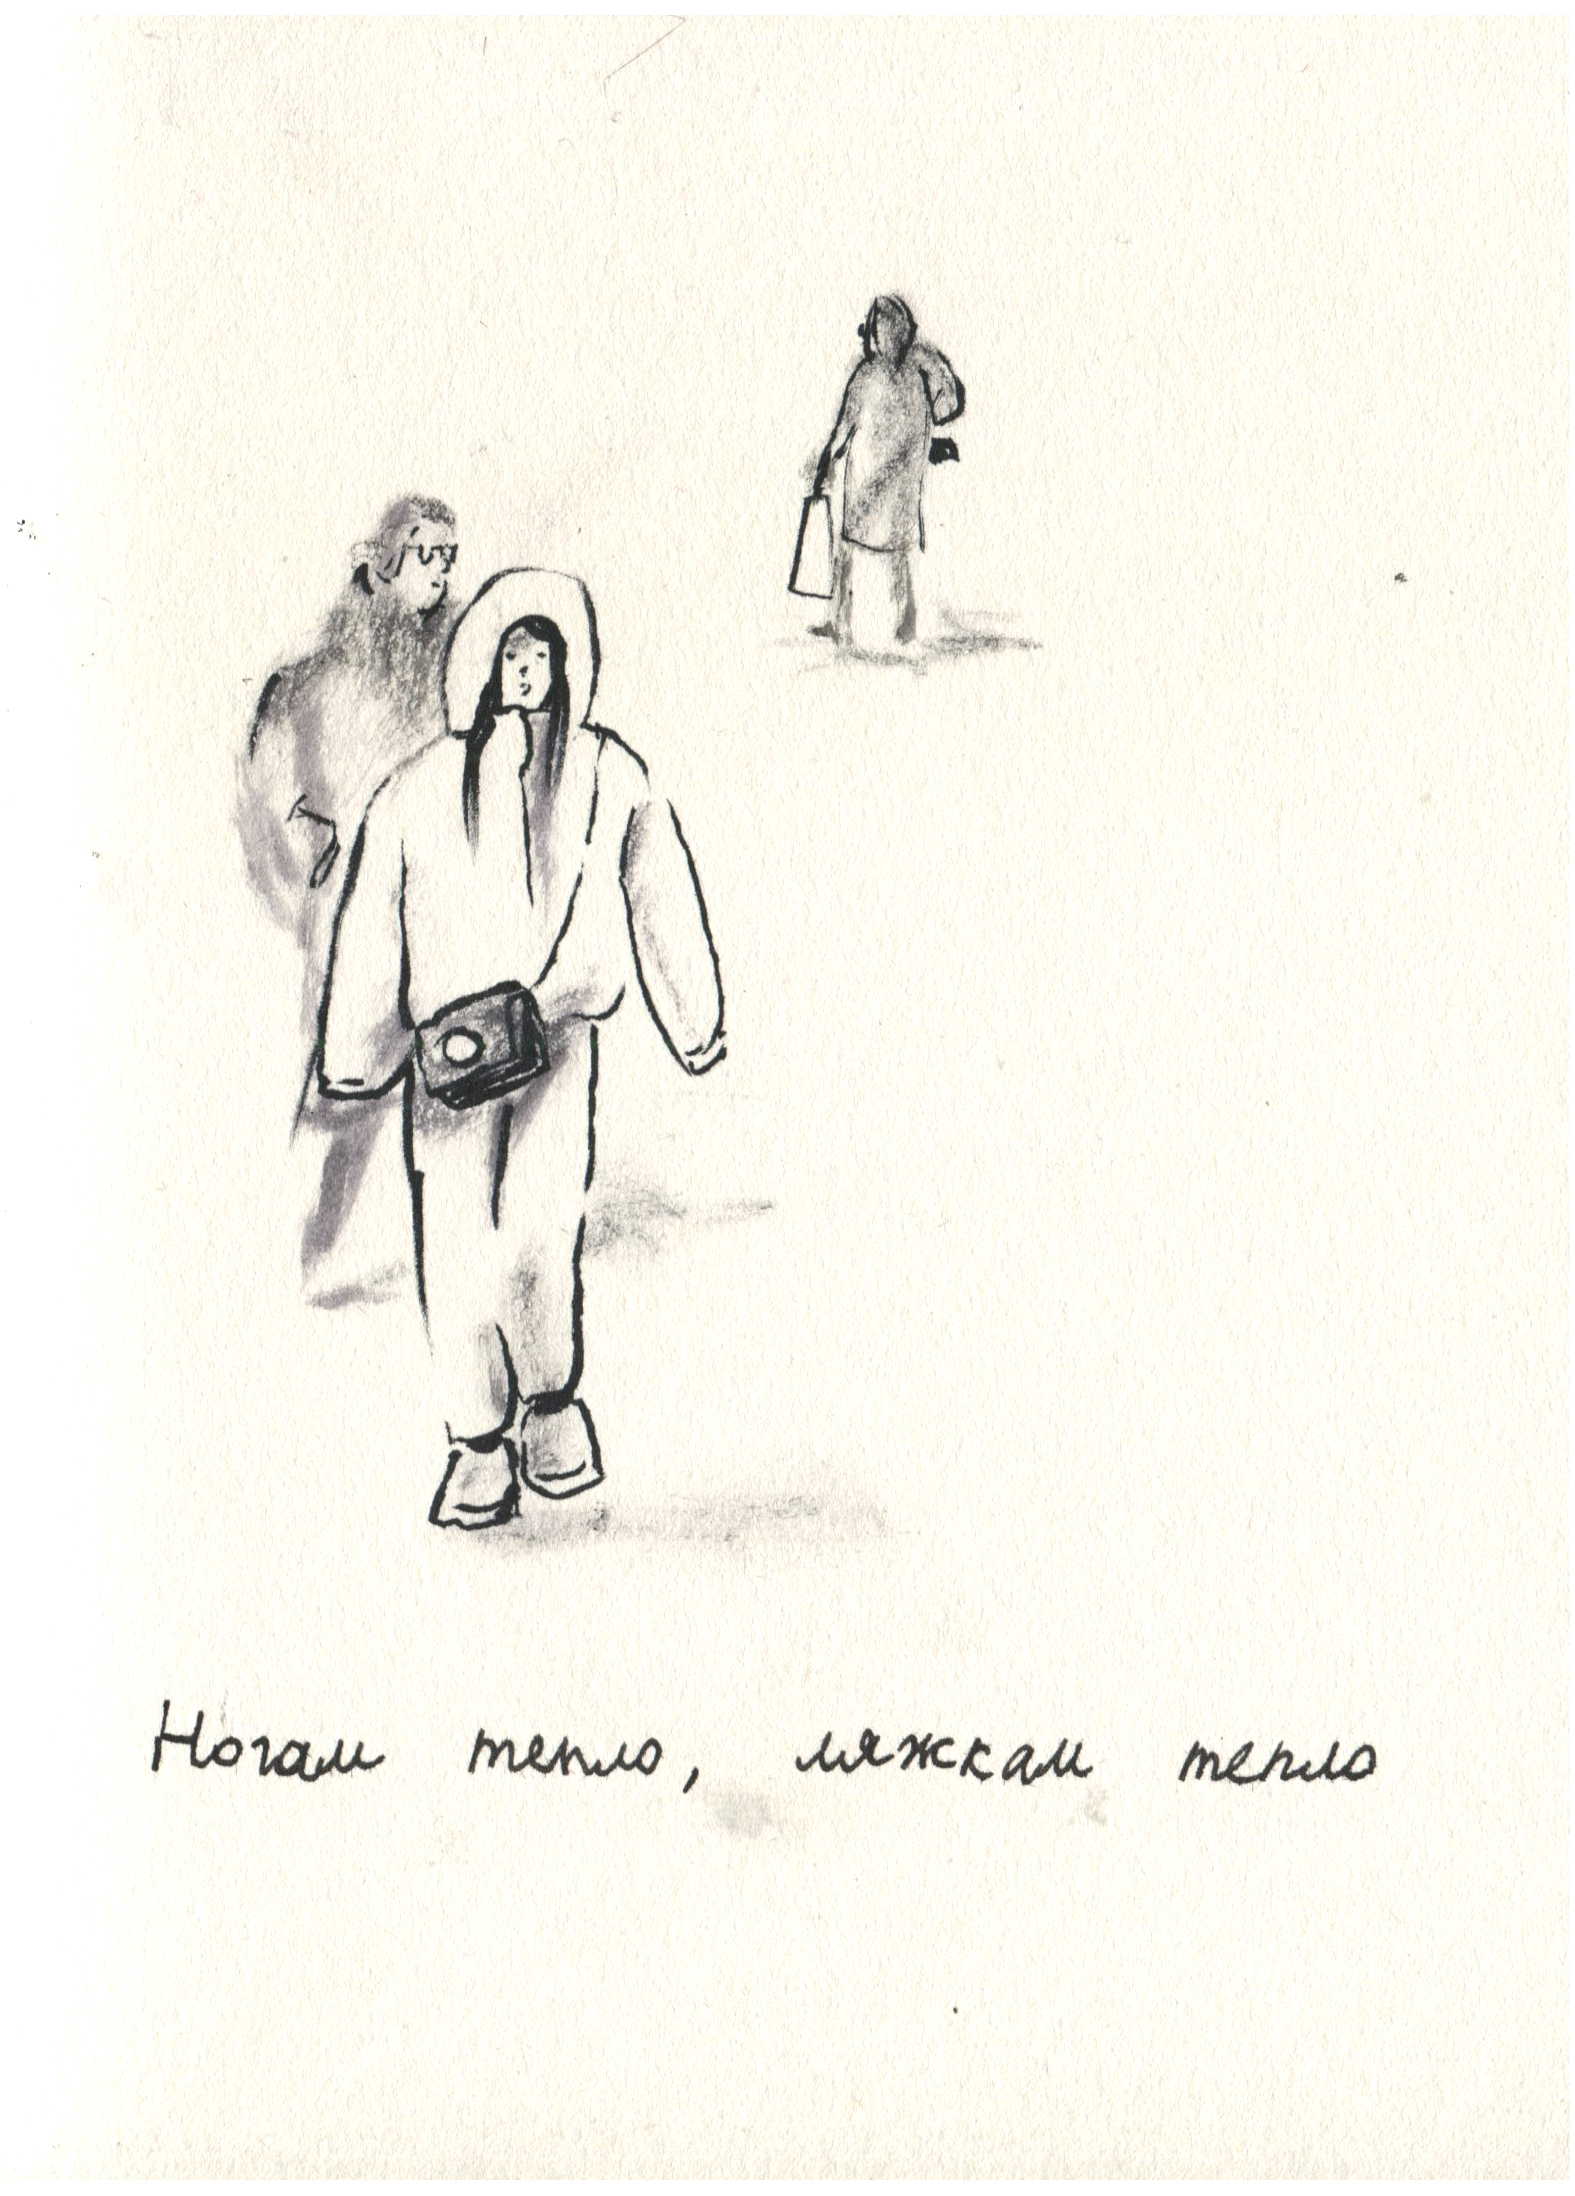 Ногам тепло, ляжкам тепло